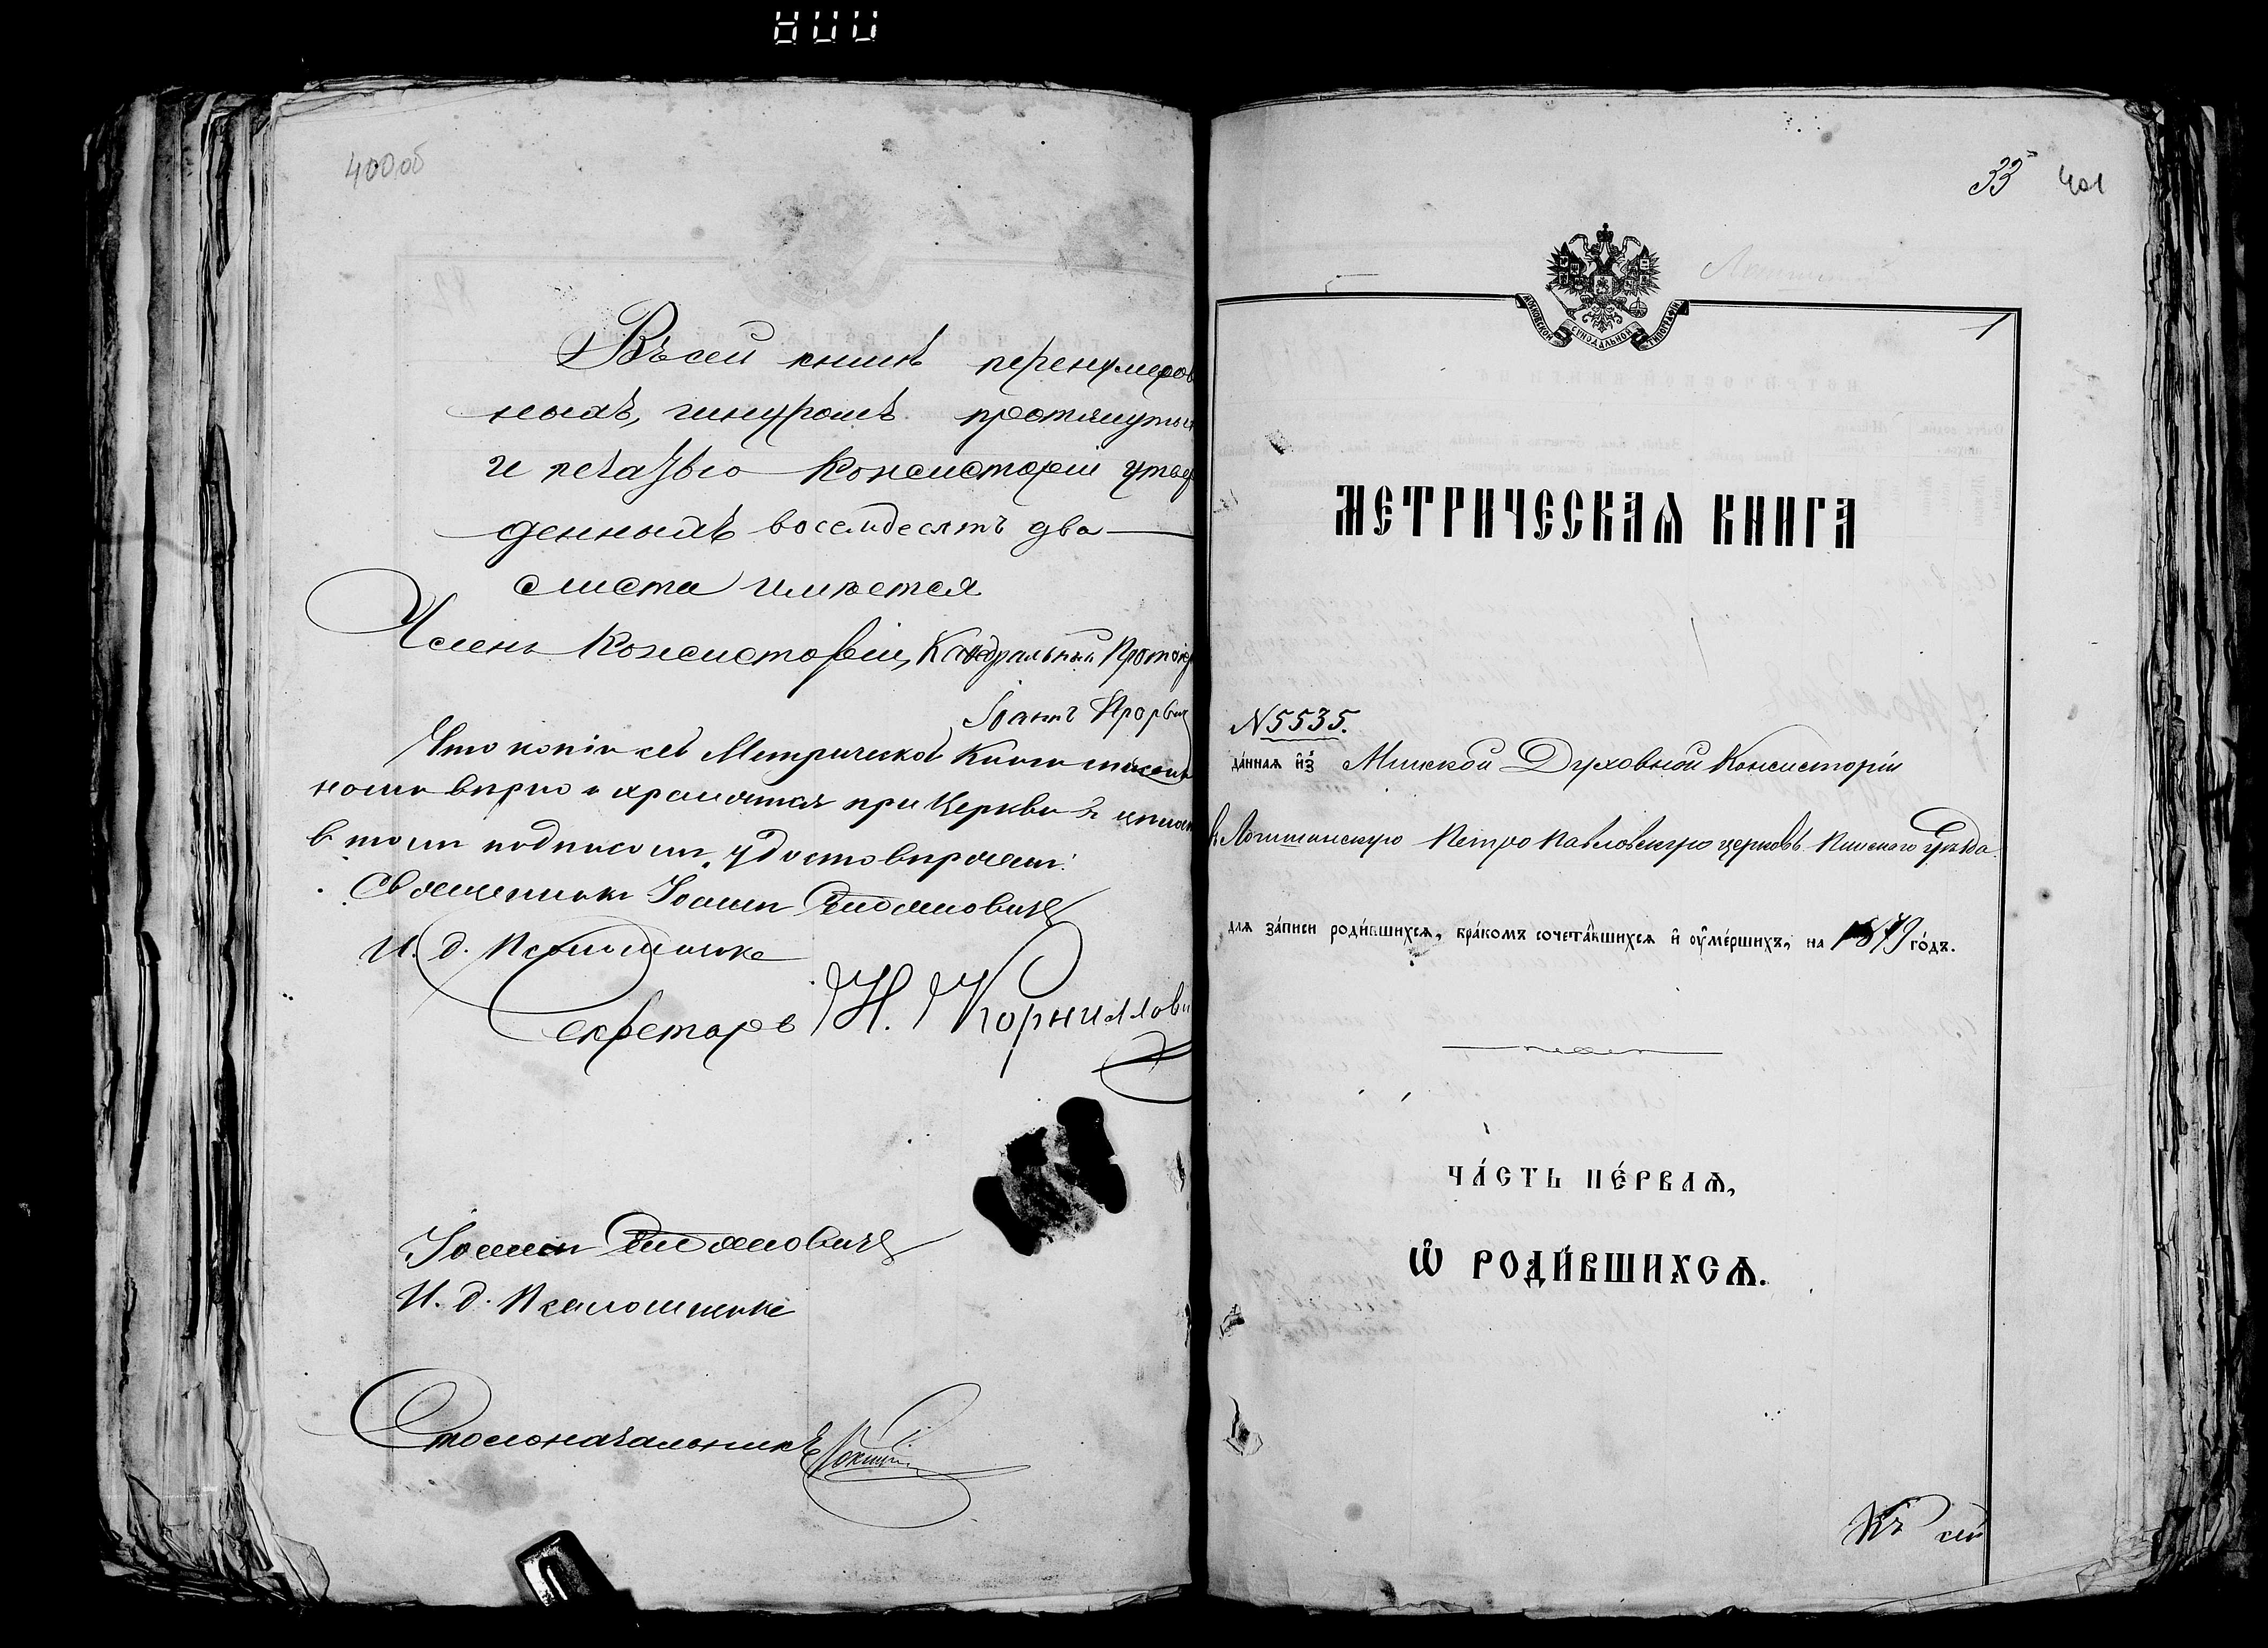 400об
Въ сей книгѣ перенумеров
ныхъ, шнуромъ протянутых
и печатью Консисторіи утвер
жденныхъ восемдесятъ два
листа имѣется
Членъ Консисторіи, Каѳедральный Протоіер
Іоаннъ
Что копія сей Метрической Книги
вѣрно и хранится при Церкви въ
в томъ подписомъ удостовѣряемъ:
Священникъ Іоаннъ
И. д. Псаломщика
Секретарь Н. Корнилови
Іоаннъ
И. д. Псаломщика
Столоначальникъ
33 401
МОСКОВСКОЙ СѴНОДАЛЬНОЙ ТИПОГРАФІИ
1
МЕТРИЧЕСКАѦ КНИГА
N 5535.
да́ннаѧ и҆з̾ Минской Духовной Консисторіи
в Логишинскую Петро Павловскую церковь Пинского Уѣзда
длѧ за́писи роди́вшихсѧ, бра́комъ сочета́вшихсѧ и҆ ᲂу҆ме́ршихъ, на 1879 го́дъ.
ЧА́СТЬ ПЕ́РВАѦ,
Ѡ҆ РОДИ́ВШИХСѦ.
Къ сей